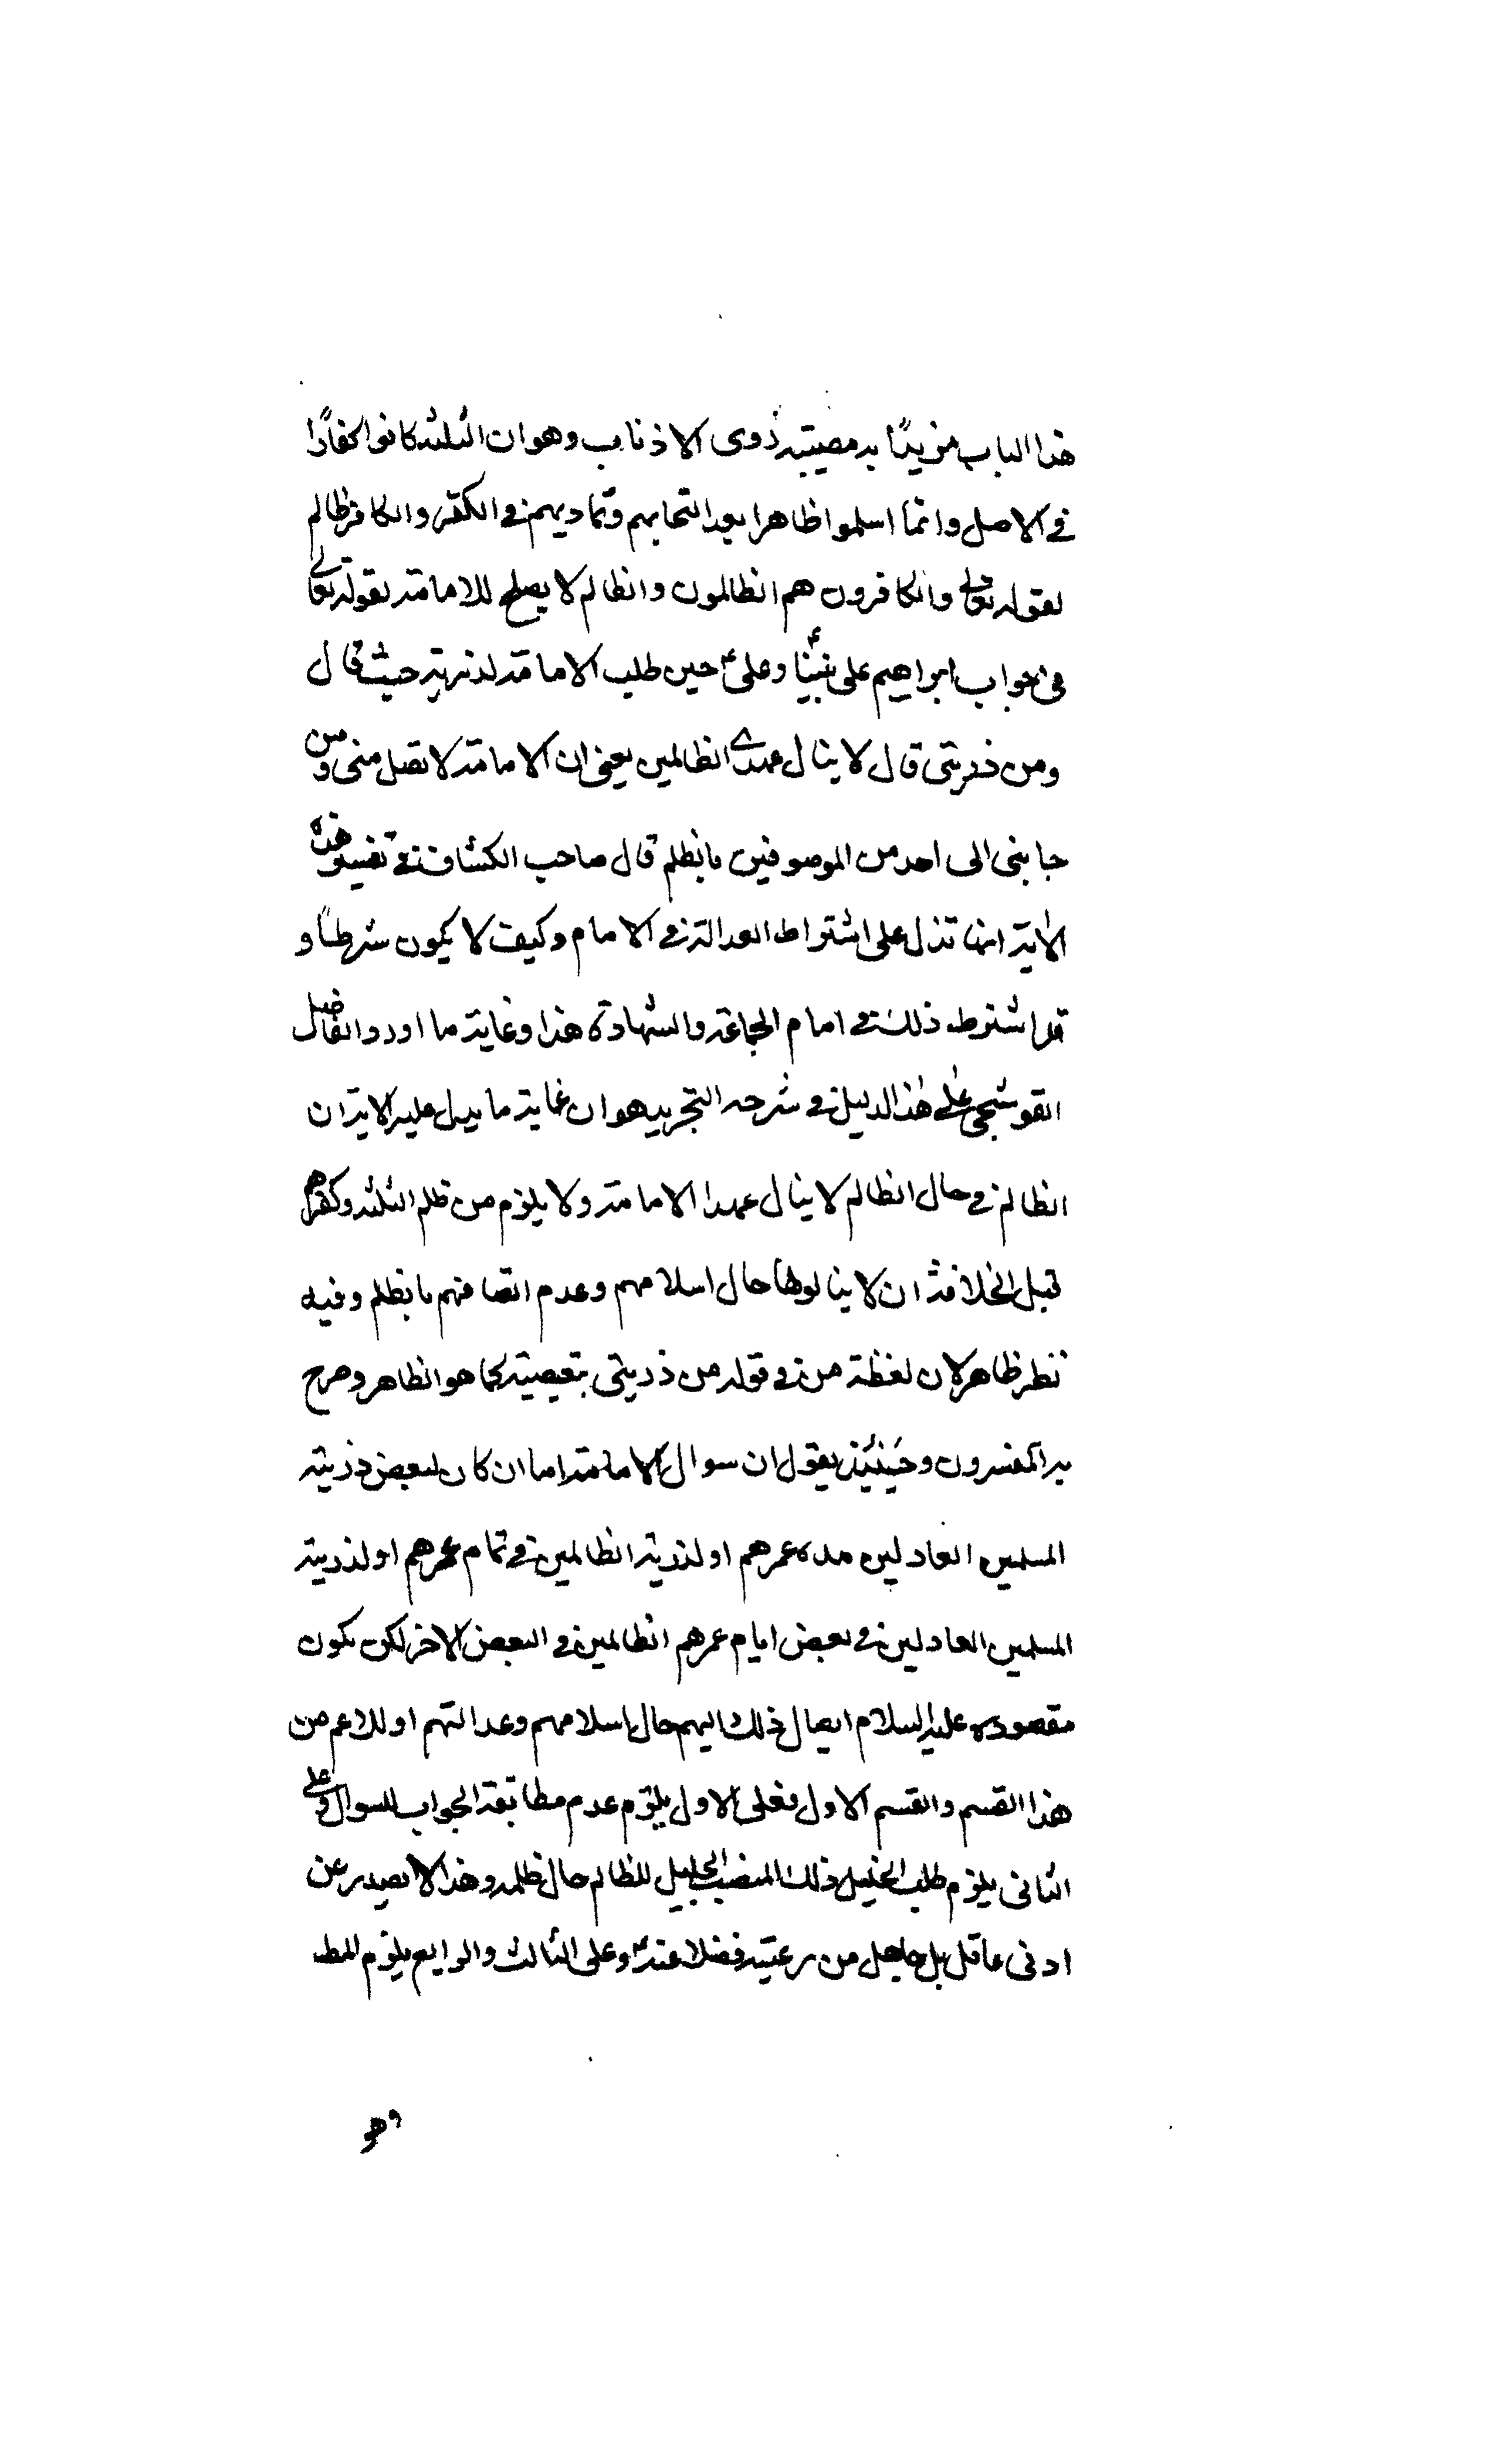 هذا الباب مزيدًا به مصيبته ذوى الاذناب وهو ان الثلثه كانوا كفارًا
في الاصل وانما اسلموا ظاهرا بعد التحابهم وتماديهم في الكفر والكافر ظالم
لقوله تعالى والكافرون هم الظالمون والظالم لا يصلح للامامة لقوله تعالى
في جواب ابراهيم على نبينا وعلىء حين طلب الامامة لذريته حيث قال
ومن ذريتى قال لا ينال عهدى الظالمين يعنى ان الامامة لا تصل منى ومن
جابنى الى احد من الموصوفين بالظلم قال صاحب الكشاف في تفسير هذه
الاية انها تدل على اشتراط العدالة في الامام وكيف لا يكون شرطًا و
قد اشترط ذلك في امام الجماعة والشهادة هذا وغاية ما اورد الفاضل
القوشجى على هذا الدليل في شرحه التجريد هو ان غاية ما يدل عليه الاية ان
الظالم في حال الظالم لا ينال عهد الامامة ولا يلزم من ظلم الثلثه وكفرهم
قبل الخلافة ان لا ينالوها حال اسلامهم وعدم اتصافهم بالظلم وفيه
نظر ظاهر لان لفظة من في قوله من ذريتى تبعيضية كما هو الظاهر وصرح
به المفسرون وحينئذ يقول ان سوال الامامة اما ان كان لبعض ذريته
المسلمين العادلين مدة عمرهم او لذريته الظالمين في تمام عمرهم او لذريته
المسلمين العادلين في بعض ايام عمرهم الظالمين في البعض الاخر لكن يكون
مقصوده عليه السلام ايصال ذلك اليهم حال اسلامهم وعدالتهم او للاعم من
هذا القسم والقسم الاول فعلى الاول يلزم عدم مطابقة الجواب للسوال وعلى
الثانى يلزم طلب الخليل ذلك المنصب الجليل للظالم حال ظلمه وهذا لا يصدر عن
ادنى عاقل بل جاهل من رعيته فضلا عنهء وعلى الثالث والرابع يلزم المط
وهو